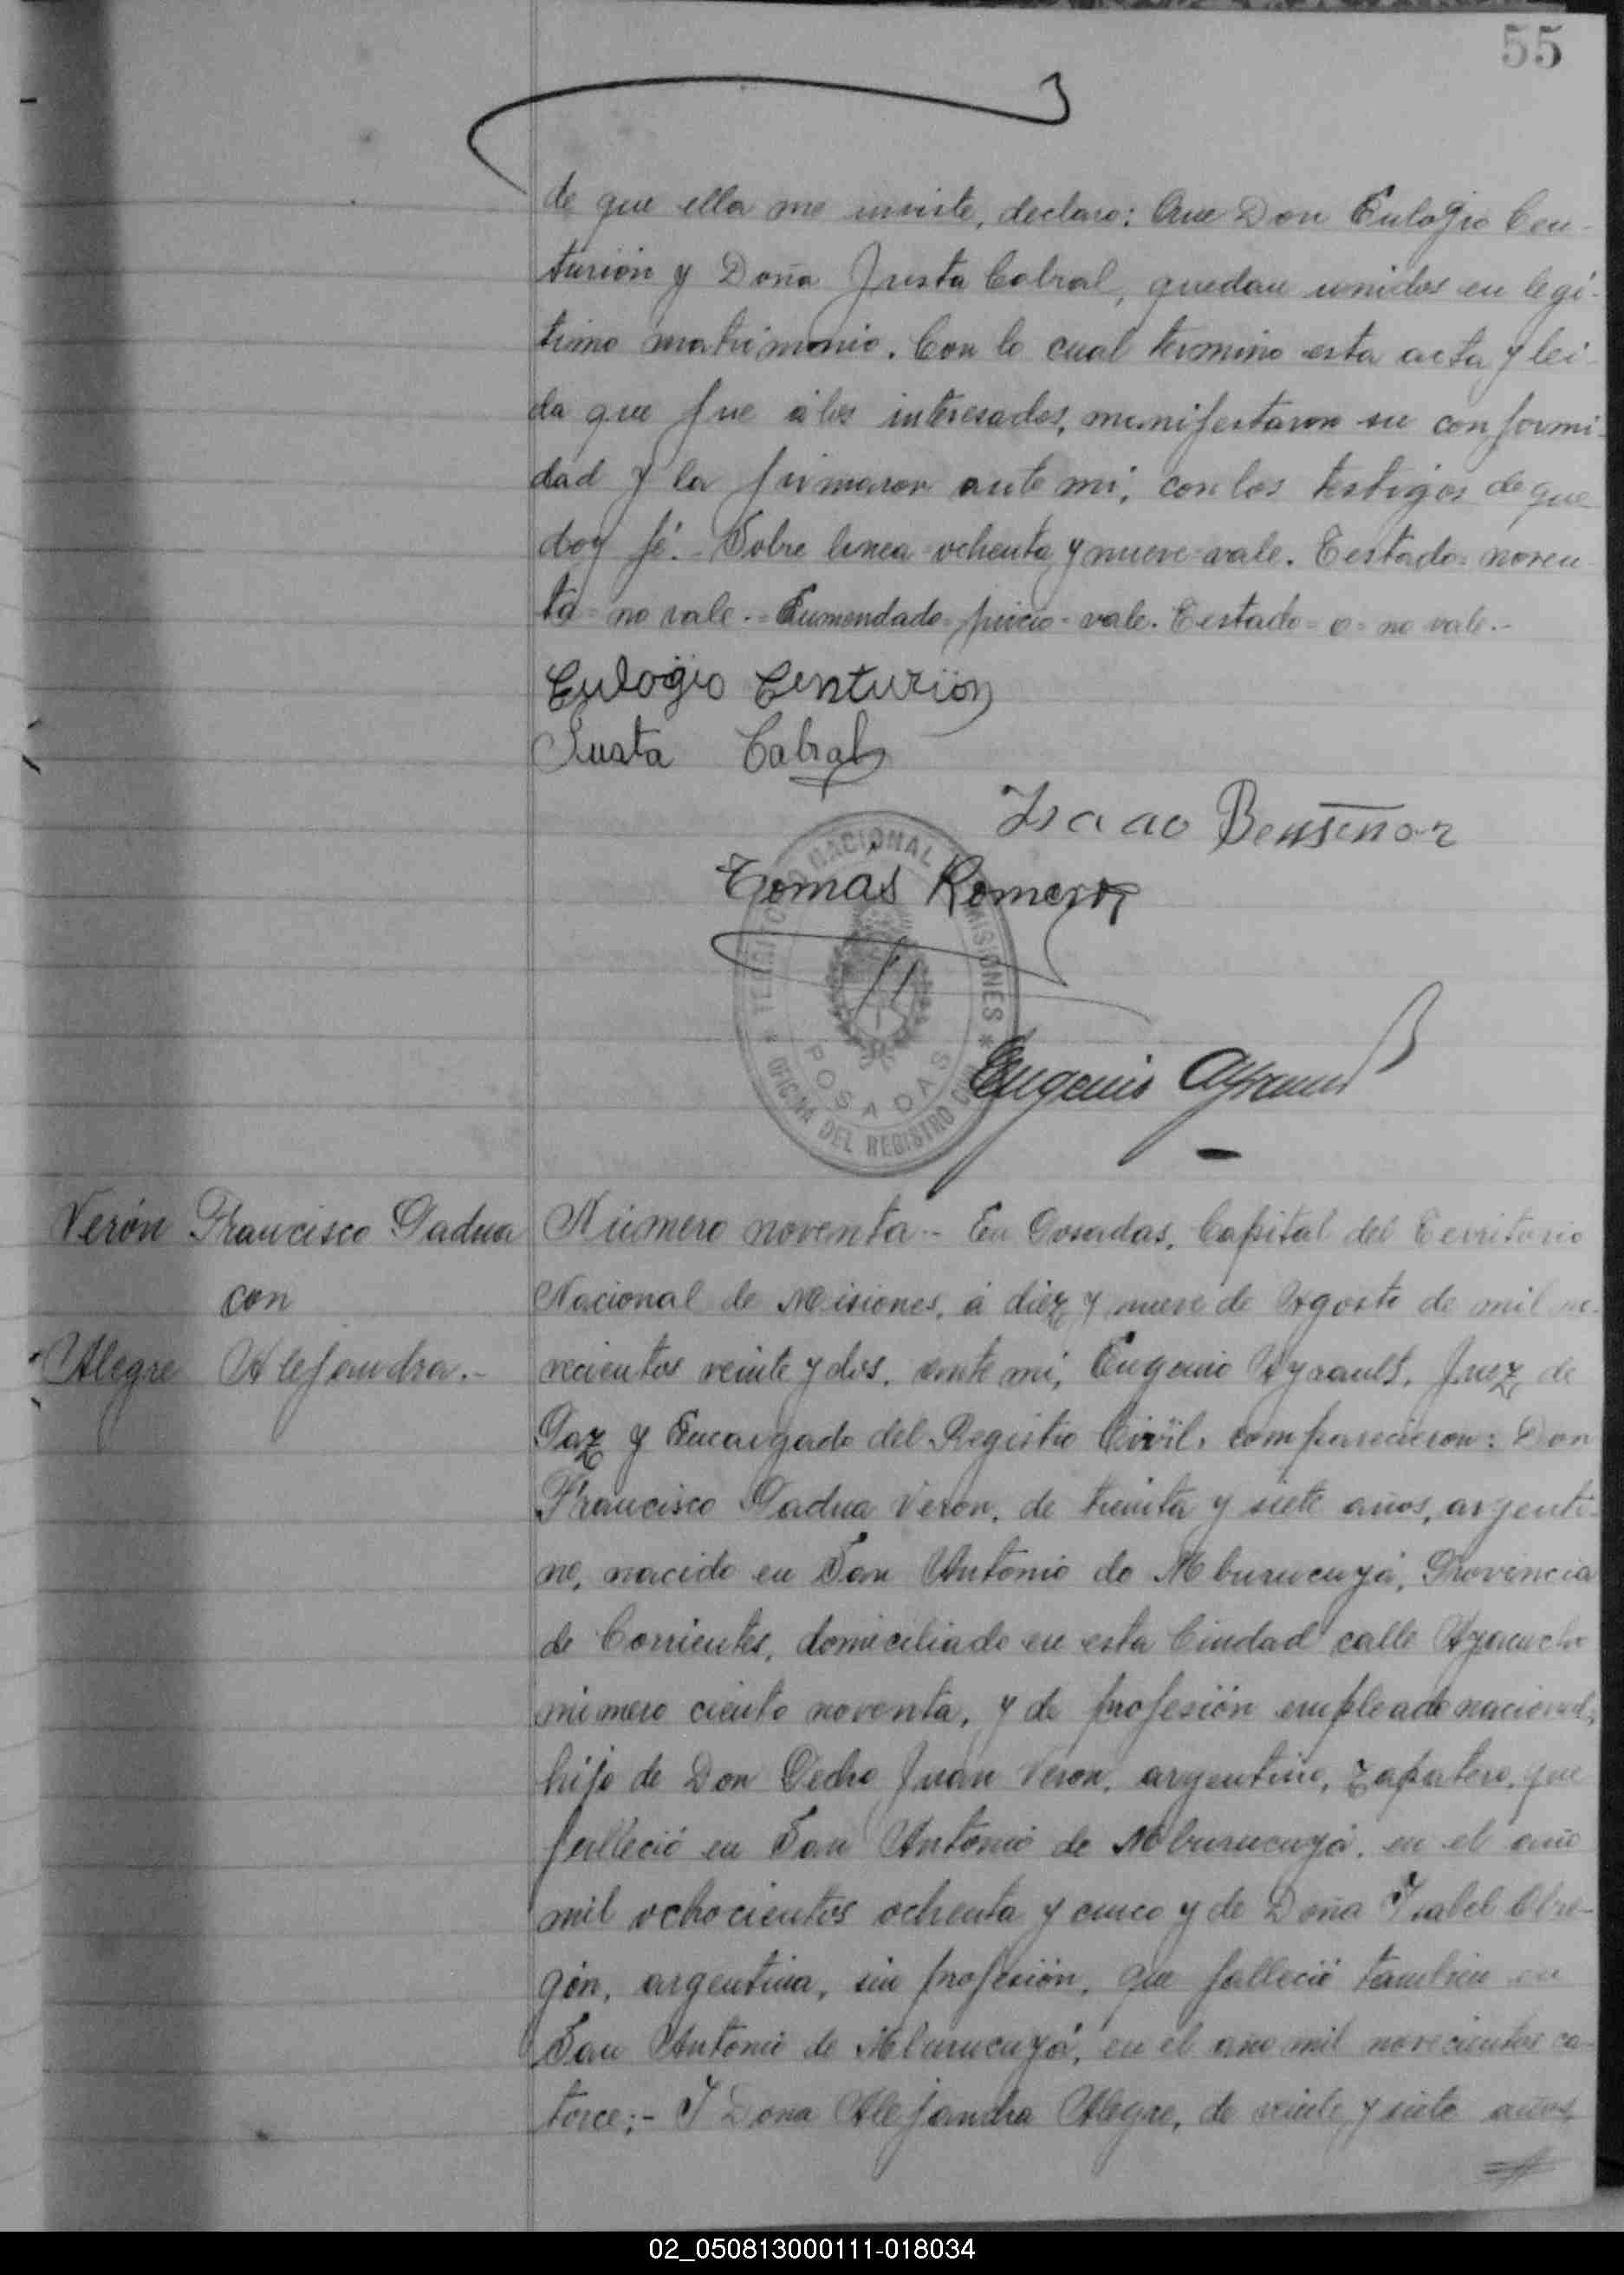 55
de que ella me inviste, declaro: Que Don Eulogio Cen-
turión y Doña Justa Cabral, quedan unidos en legí-
timo matrimonio. Con lo cual termino esta acta y lei-
da que fue á los interesados, manifestaron su conformi-
dad y la firmaron ante mi, con los testigos de que
doy fé.- Sobre linea=ochenta y nueve=vale. Testado=noven
ta=no vale.=Enmendado=juicio=vale. Testado=o=no vale.-
Eulogio Centurión
Justa Cabral
Isaac Benseñor
Tomás Romero
TERRITORIO NACIONAL MISIONES
POSADAS
OFICINA DEL REGISTRO CIVIL
Eugenio Ayrault
Verón Francisco Padua
con
Alegre Alejandra.-
Número noventa.- En Posadas, Capital del Territorio
Nacional de Misiones, á diez y nueve de Agosto de mil no-
vecientos veinte y dos, ante mi, Eugenio Ayrault, Juez de
Paz y Encargado del Registro Civil, comparecieron: Don
Francisco Padua Veron, de treinta y siete años, argenti-
no, nacido en San Antonio de Mburucuyá, Provincia
de Corrientes, domiciliado en esta Ciudad calle Ayacucho
número ciento noventa, y de profesión empleado nacional,
hijo de Don Pedro Juan Veron, argentino, zapatero, que
falleció en San Antonio de Mburucuyá, en el año
mil ochocientos ochenta y cinco y de Doña Isabel Obre-
gón, argentina, sin profesión, que falleció tambien en
San Antonio de Mburucuyá, en el año mil novecientos ca-
torce;- Y Doña Alejandra Alegre, de veinte y siete años,
02_050813000111-018034